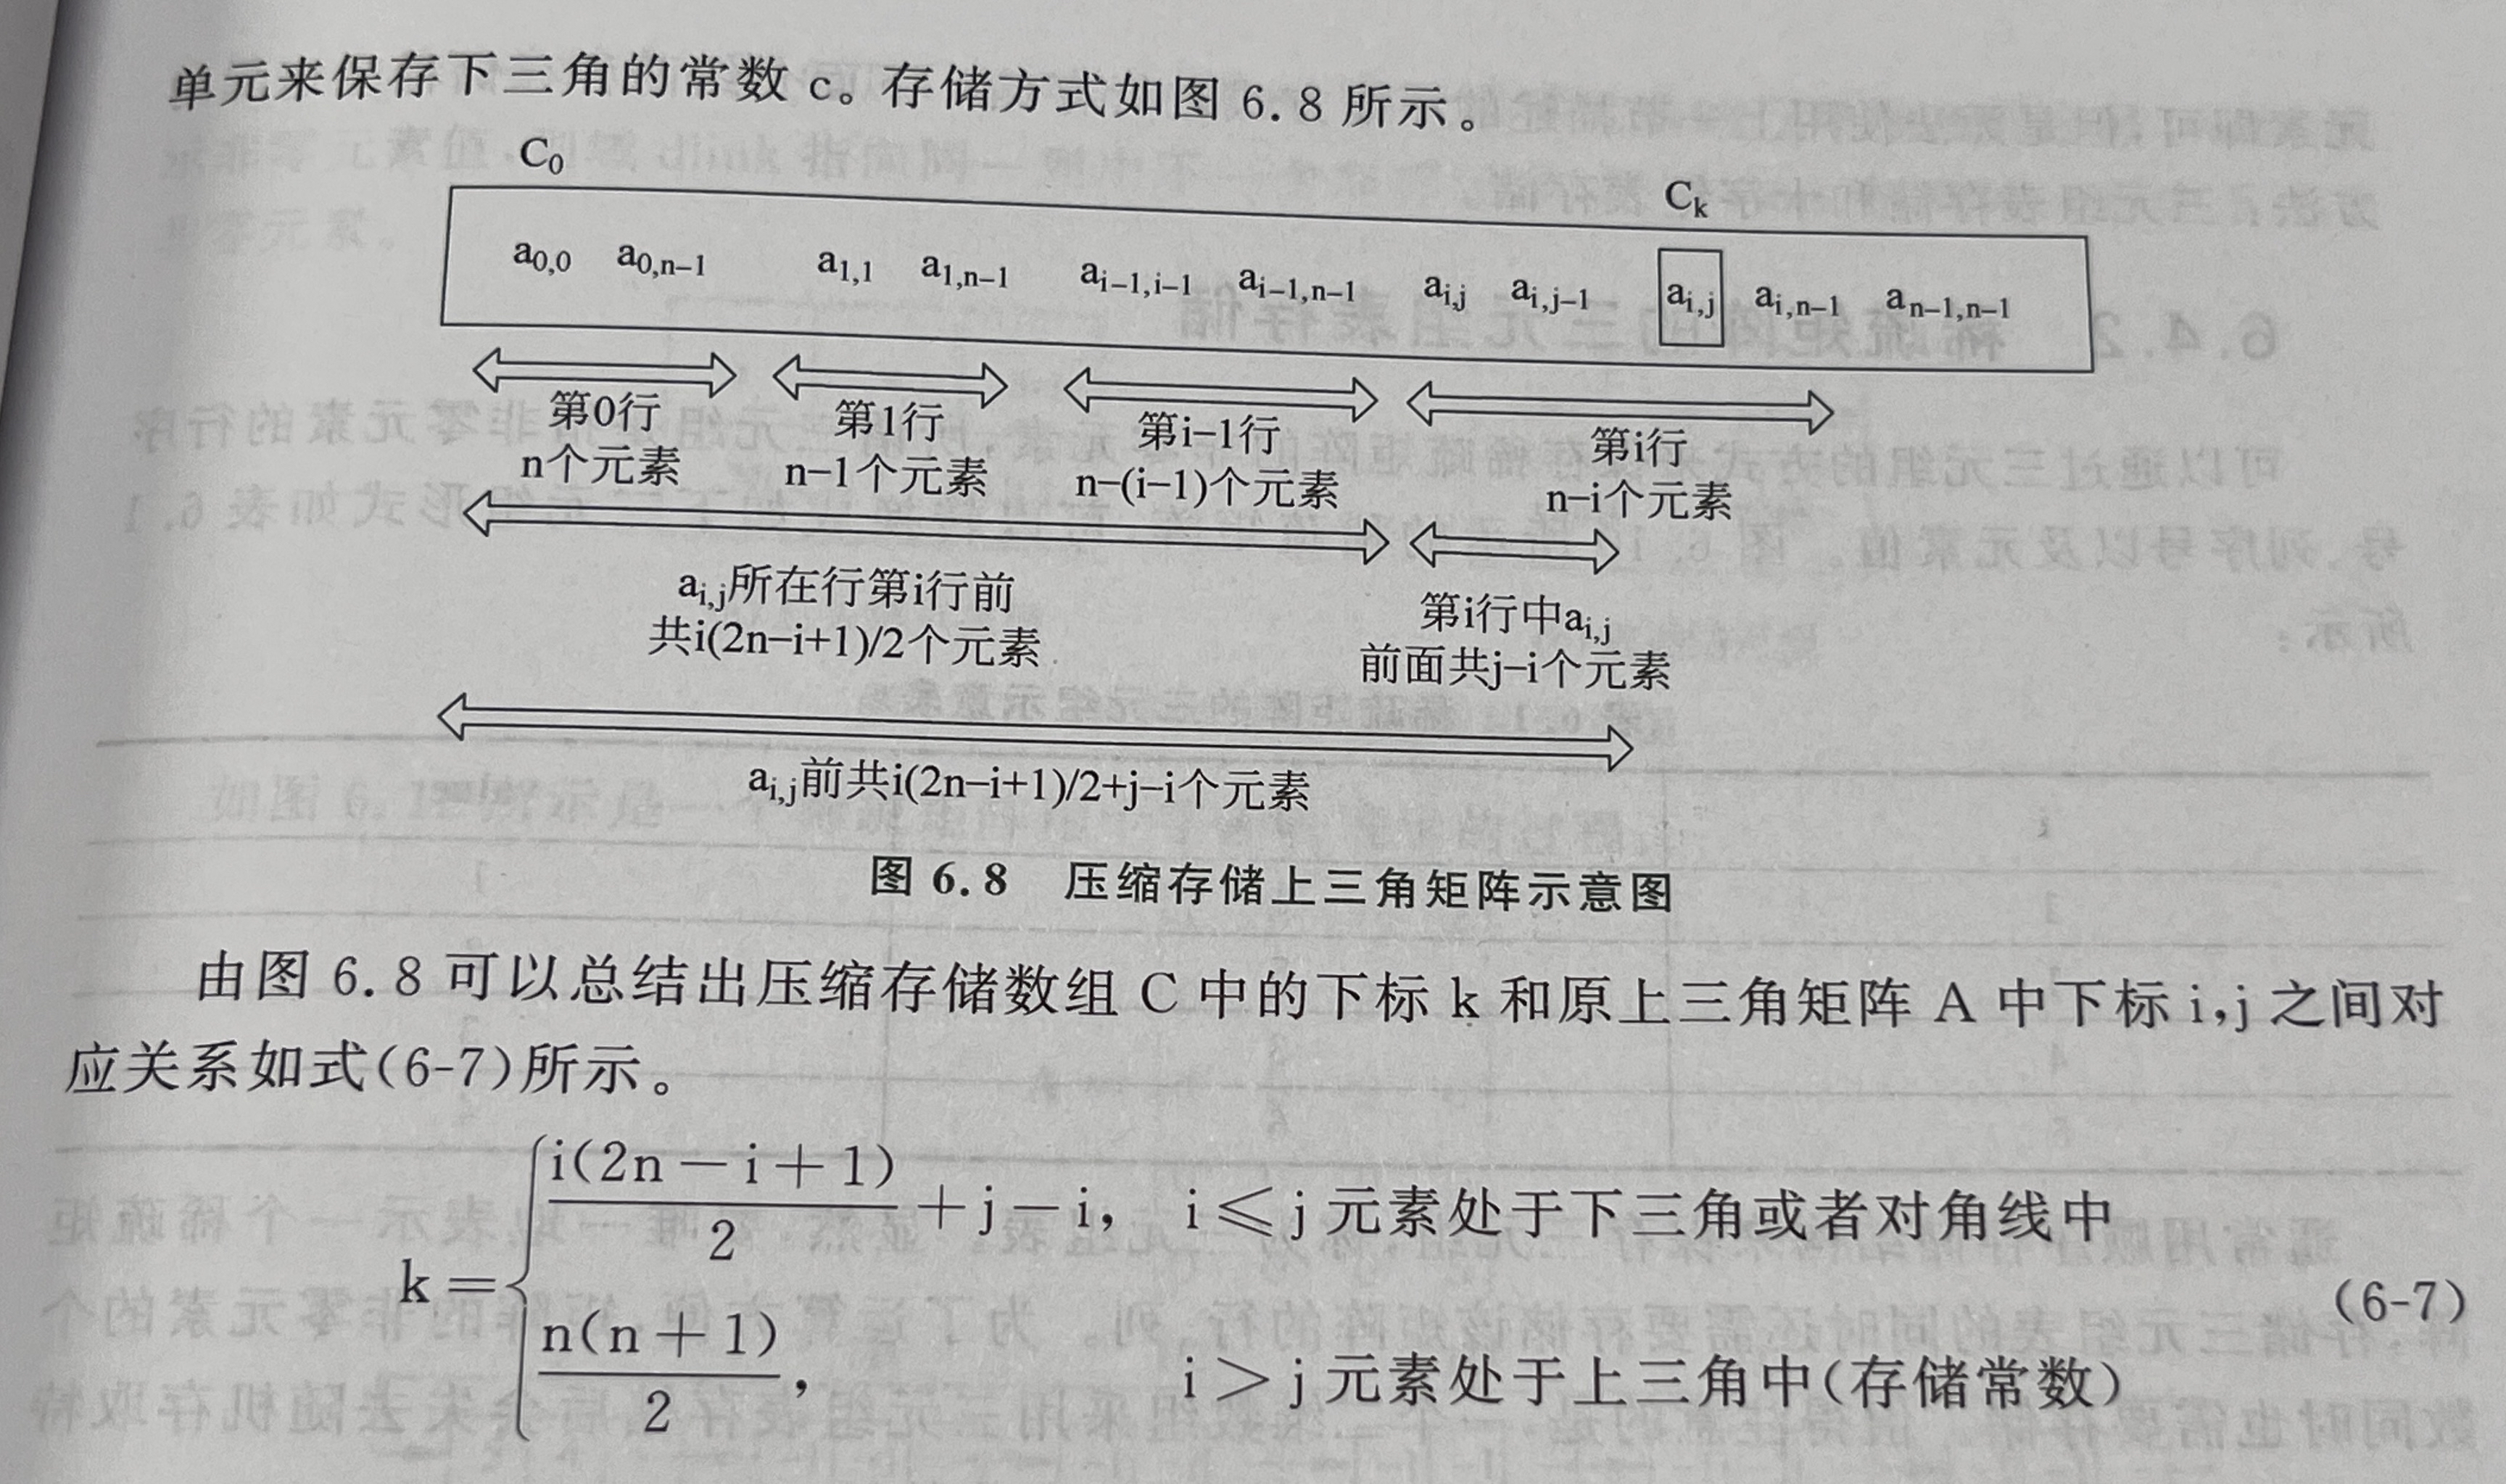 单元来保存下三角的常数 c。存储方式如图 6.8 所示。
C₀ Cₖ
a₀,₀ a₀,ₙ₋₁ a₁,₁ a₁,ₙ₋₁ aᵢ₋₁,ᵢ₋₁ aᵢ₋₁,ₙ₋₁ aᵢ,ⱼ aᵢ,ⱼ₋₁ aᵢ,ⱼ aᵢ,ₙ₋₁ aₙ₋₁,ₙ₋₁
第0行 第1行 第i−1行 第i行
n个元素 n−1个元素 n−(i−1)个元素 n−i个元素
aᵢ,ⱼ所在行第i行前
共i(2n−i+1)/2个元素
第i行中aᵢ,ⱼ
前面共j−i个元素
aᵢ,ⱼ前共i(2n−i+1)/2+j−i个元素
图 6.8 压缩存储上三角矩阵示意图
由图 6.8 可以总结出压缩存储数组 C 中的下标 k 和原上三角矩阵 A 中下标 i,j 之间对
应关系如式(6-7)所示。
k = { i(2n − i + 1)/2 + j − i, i ⩽ j 元素处于下三角或者对角线中
n(n + 1)/2, i > j 元素处于上三角中(存储常数)
(6-7)